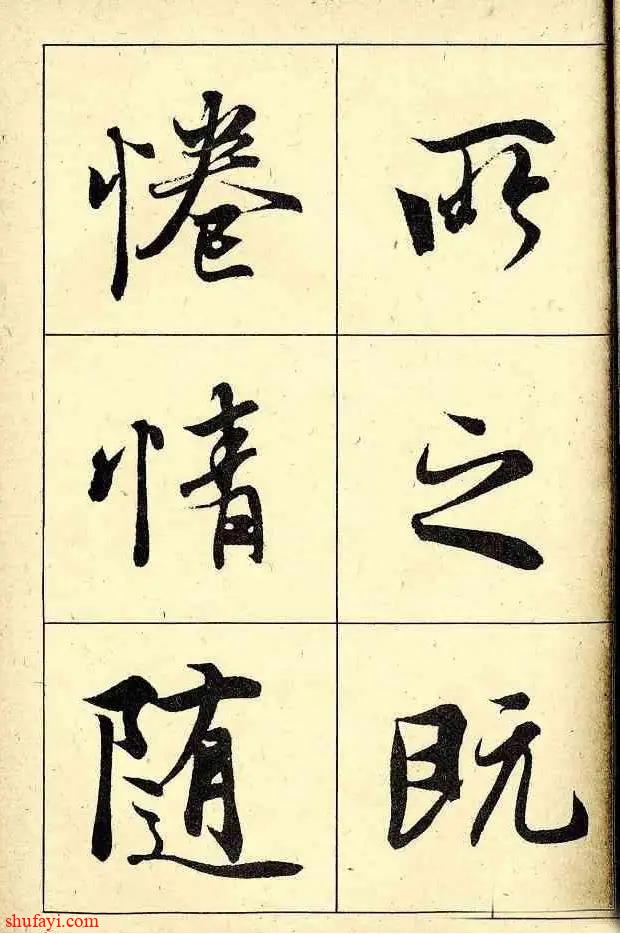 所之既
惓情随
shufayi.com